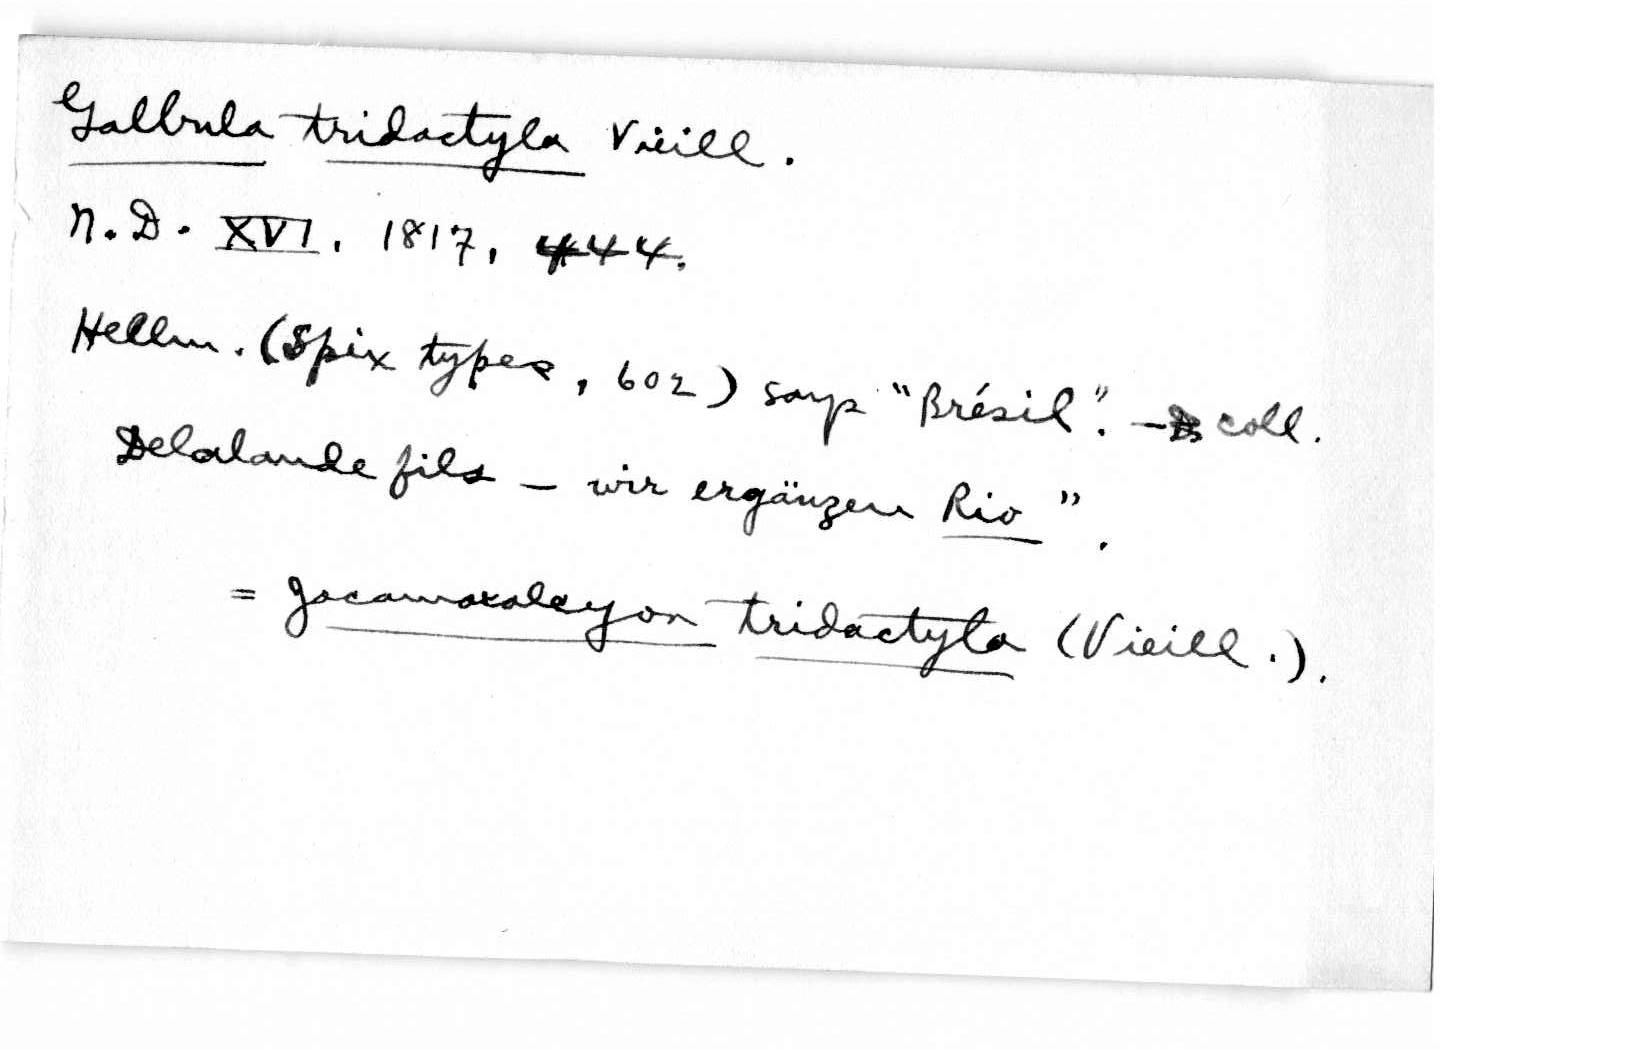 Galbula tridactyla Vieill.
N.D. XVI, 1817, 444.
Hellm. (Spix types, 602) says "Brésil". — coll.
Delalande fils — wir ergänzen Rio".
= Jacamaralcyon tridactyla (Vieill.).